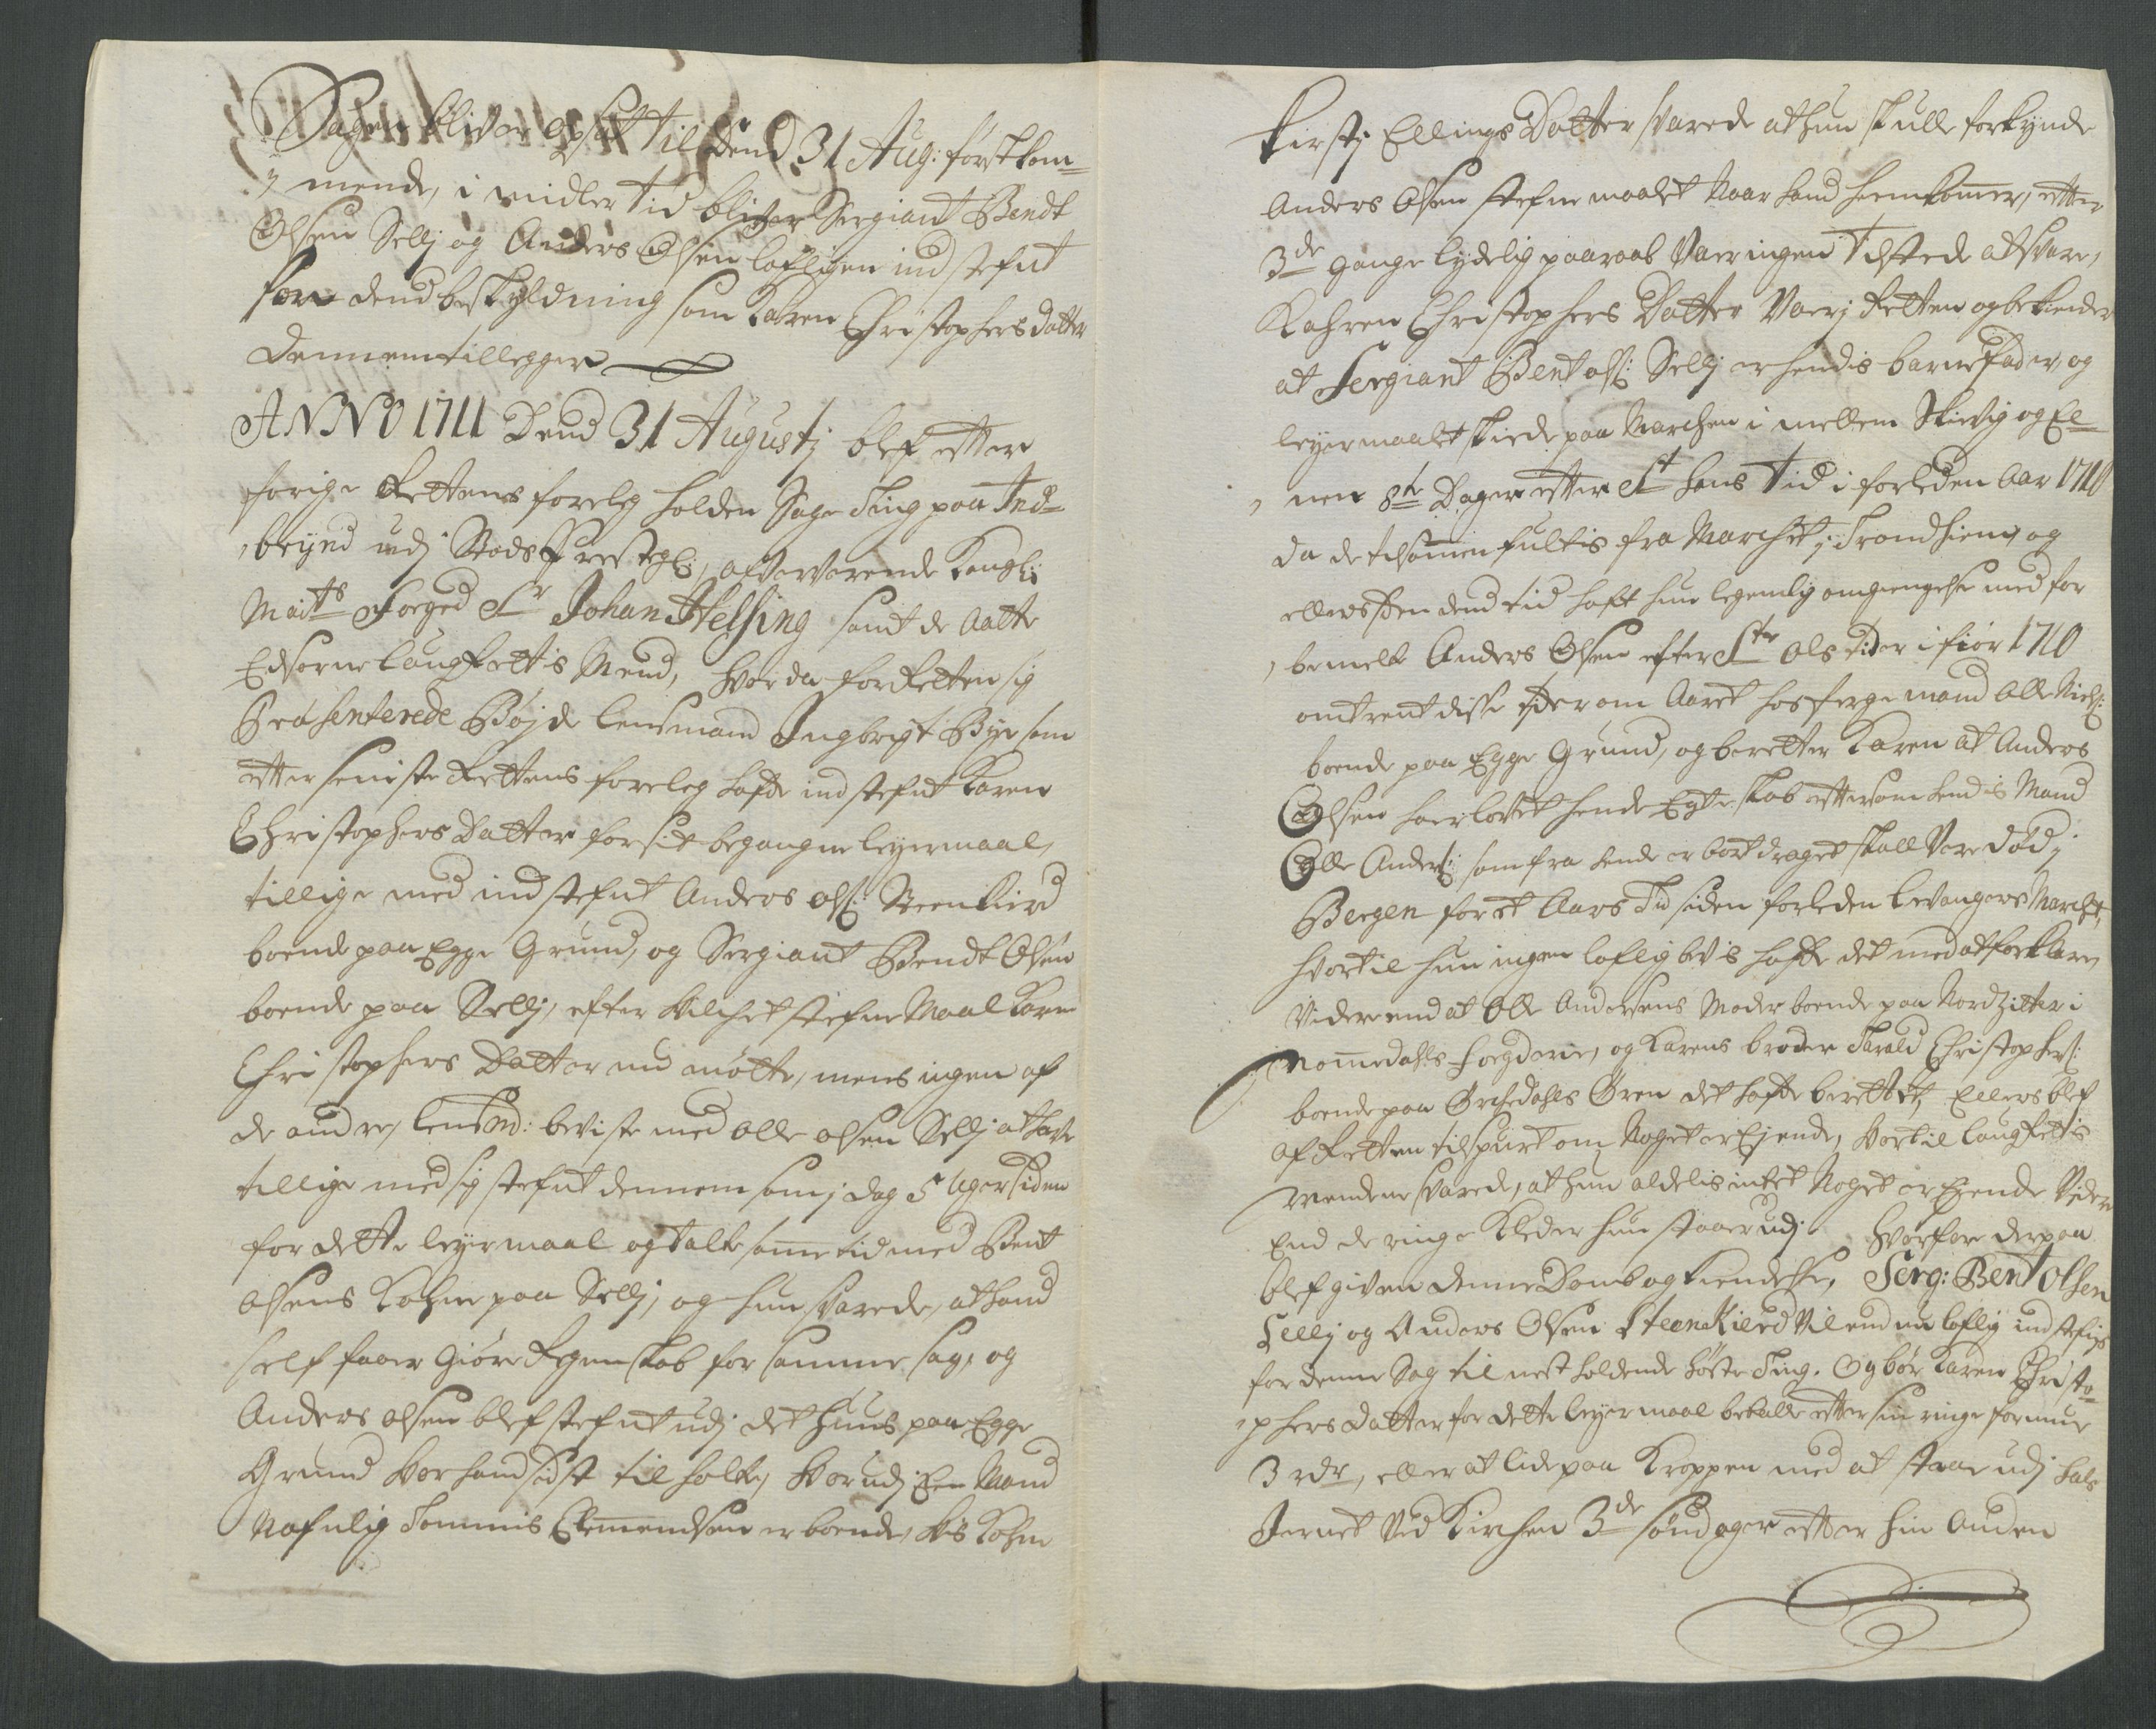 Sagen bliver opsat til dend 31 Aug: førstkom-
mende, i midlertid bliver Sergiant Bendt
Olsen Sellj og Anders Olsen lofligen ind stefnt
for dend beskyldning som Karen Christophersdatter
dennem tillegger
ANNO 1711 Dend 31 Augustj blef etter
forige Rettens forelæg holden Sage Ting paa Ind-
brynd udj Stods Prestegl:, ofververende Kongl:
Maits Foeged Sr Johan Helsing samt de Aatte
Edsorne laugRettis Mend, hvor da for Retten sig
Præsenterede Bøjde lensmand Ingbrigt Bye som
etter seniste Rettens foreleg hafde ind stefnt Karen
Christophers Datter for sit begangne leyermaal,
tillige med ind stefnt Anders ols: Steenkierd
boende paa Egge Grund, og Sergiant Bendt Olsen
boende paa Sellj, efter hvilchet stefne Maal Karen
Christophers Datter nu møtte, mens ingen af
de andre, lensmd: beviste med Olle olsen Sellj at hafve
tillige med sig stefnt dennem som j dag 5 Uger siden
for dette leyermaal og talte samme tid med Bent
olsens Kohne paa Sellj, og hun svarede, at hand
self faaer giøre Regenskab for samme sag, og
Anders olsen blef stefnt udj det huus paa Egge
Grund hvor hand sidst til holte, hvor udj Een Mand
Nafnlig Tommis Clemendsen er boende, hvis Kohne
Kirstj Ellings Datter svarede at hun skulle forkynde
Anders Olsen stefnemaalet Naar hand hiemkommer, etter
3de gange lydelig paaraab Var ingen tilstede at svare,
Kahren Christophers Datter Var j Retten og bekiender
at Sergiant Bent ols: Sellj er hendis barnefader, og
leyermaalet skiede paa Marchen i mellem Skievig og El-
nen 8te Dager etter St Hans Tid i forleden Aar 1710
da de tilsammen fultis fra Marchet j Trondhiem, og
ellers siden dend tid haft hun legemlig omgiengelse med for
bemelte Anders Olsen efter Ste Ols tider i fior 1710
omtrent disse tider om Aaret hos ferge mand Olle Niels:
boende paa Egge Grund, og beretter Karen at Anders
Olsen haer lovet hende Egteskab ettersom hendis Mand
Olle Anders: som fra hende er bort draget skall Vere død j
Bergen for et Aars Tid siden forleden Levangers Marchet,
hvortil hun ingen loflig bevis hafde det med at forklare,
Videre end at Olle Andersens Moder boende paa Nordzitter i
Nommedahls foegderie, og Karens broder Tarald Christophers:
boende paa Ørchedahls Øren det hafde berettet, Ellers blef
af Retten tilspurt om Noget er Ejende, hvortil laugRettis
Mendene svarede, at hun aldelis intet Noget er Eiende Videre
End de ringe Kleder hun staaer udj. Hvorfore derpaa
blef given denne Domb og Kiendelse, Serg: Bent Olsen
Sellj og Anders Olsen Steenkierd Vil end nu loflig ind stefnes
for denne Sag til nest holdende høste Ting. Og bør Karen Christo-
phers datter for dette leyermaal betalle etter sin ringe formue
3 rdr, eller at lide paa Kroppen med at staae udj hals
Jernet Ved Kirchen 3de søndager etter hin Anden